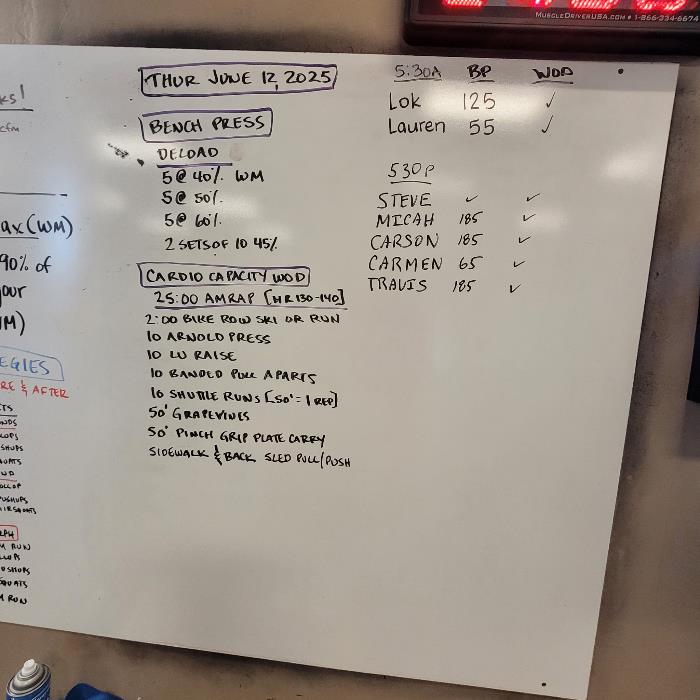 MUSCLEDRIVERUSA.COM • 1-866-334-6674
THUR JUNE 12, 2025
BENCH PRESS
DELOAD
5@ 40% WM
5@ 50%
5@ 60%
2 SETS OF 10 45%
CARDIO CAPACITY WOD
25:00 AMRAP [HR 130-140]
2:00 BIKE ROW SKI OR RUN
10 ARNOLD PRESS
10 LU RAISE
10 BANDED PULL APARTS
10 SHUTTLE RUNS [50' = 1 REP]
50' GRAPEVINES
50' PINCH GRIP PLATE CARRY
SIDEWALK & BACK SLED PULL/PUSH
5:30A BP WOD
Lok 125 ✓
Lauren 55 ✓
530P
STEVE ✓ ✓
MICAH 185 ✓
CARSON 185 ✓
CARMEN 65 ✓
TRAVIS 185 ✓
ax (WM)
90% of
our
M)
EGIES
RE & AFTER
M RUN